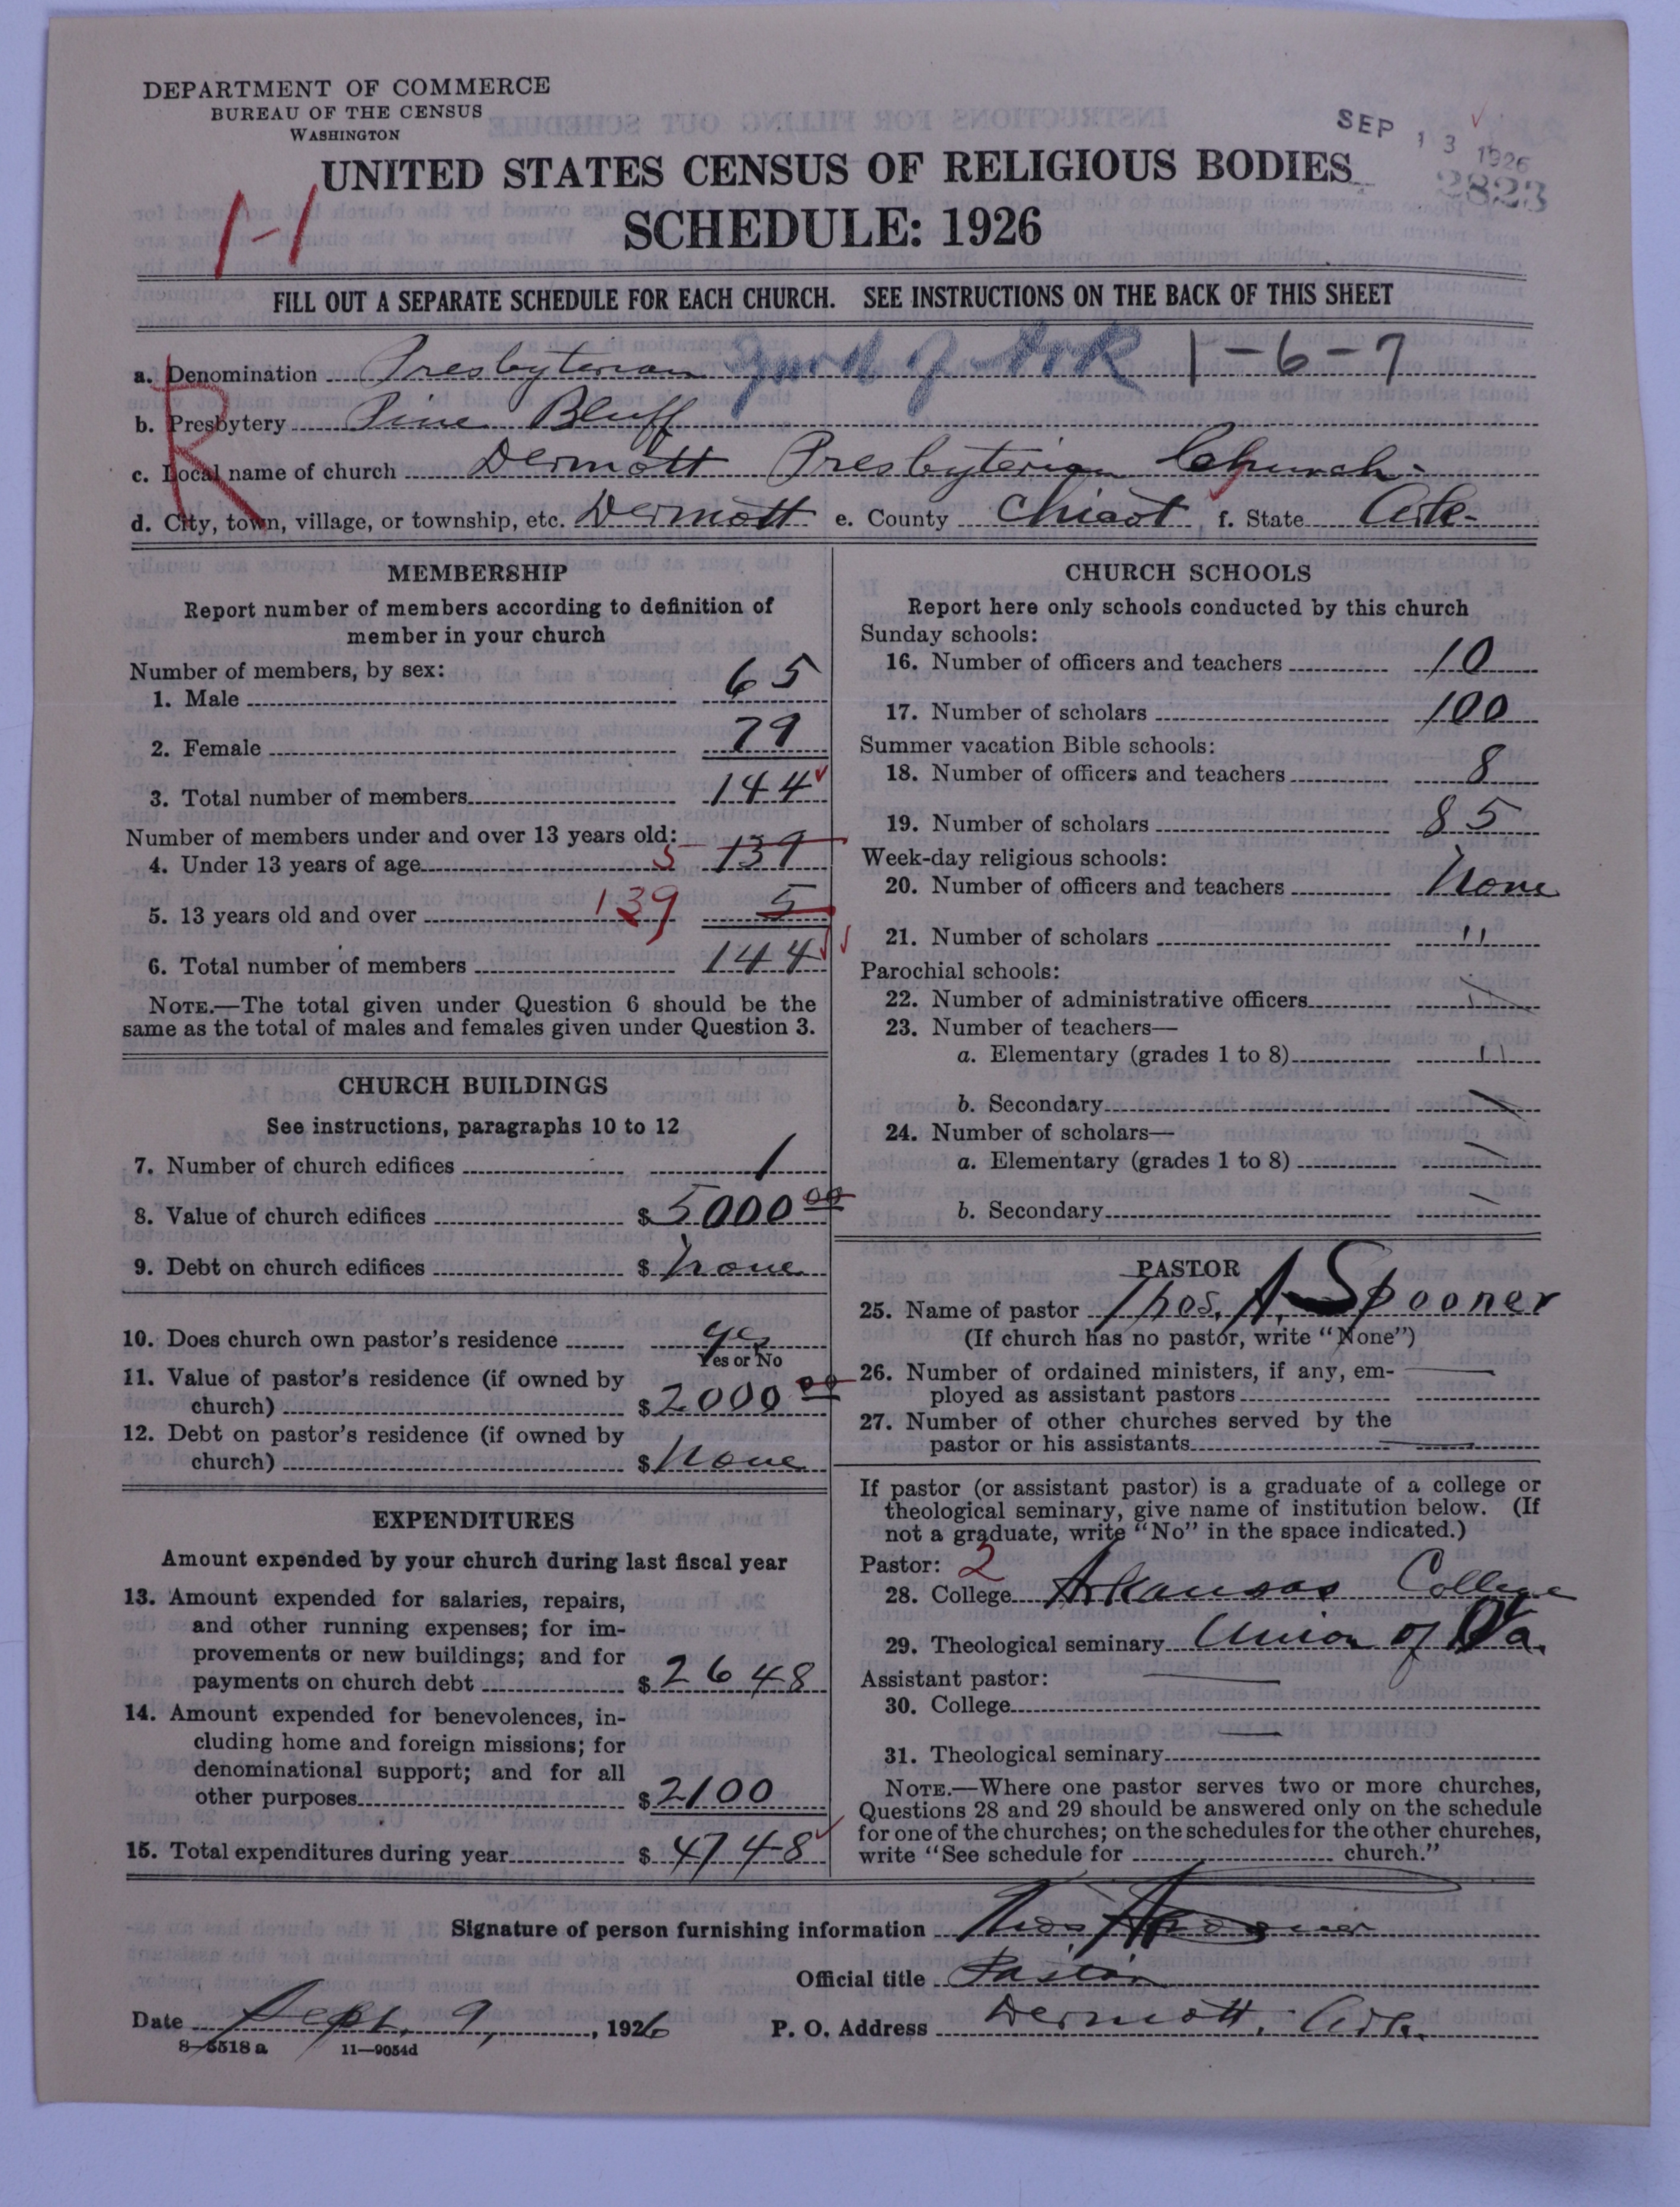 DEPARTMENT OF COMMERCE
BUREAU OF THE CENSUS
WASHINGTON
SEP 13 1926
2823
UNITED STATES CENSUS OF RELIGIOUS BODIES
SCHEDULE: 1926
FILL OUT A SEPARATE SCHEDULE FOR EACH CHURCH. SEE INSTRUCTIONS ON THE BACK OF THIS SHEET
a. Denomination Presbyterian 1-6-7
b. Presbytery Pine Bluff
c. Local name of church Dermott Presbyterian Church
d. City, town, village, or township, etc. Dermott e. County Chicot f. State Ark.
MEMBERSHIP
Report number of members according to definition of
member in your church
Number of members, by sex:
1. Male 65
2. Female 79
3. Total number of members 144
Number of members under and over 13 years old:
4. Under 13 years of age 5 139
5. 13 years old and over 139 5
6. Total number of members 144
NOTE.—The total given under Question 6 should be the
same as the total of males and females given under Question 3.
CHURCH BUILDINGS
See instructions, paragraphs 10 to 12
7. Number of church edifices 1
8. Value of church edifices $5000 00
9. Debt on church edifices $None
10. Does church own pastor's residence yes
Yes or No
11. Value of pastor's residence (if owned by
church) $2000 00
12. Debt on pastor's residence (if owned by
church) $None
EXPENDITURES
Amount expended by your church during last fiscal year
13. Amount expended for salaries, repairs,
and other running expenses; for im-
provements or new buildings; and for
payments on church debt $2648
14. Amount expended for benevolences, in-
cluding home and foreign missions; for
denominational support; and for all
other purposes $2100
15. Total expenditures during year $4748
CHURCH SCHOOLS
Report here only schools conducted by this church
Sunday schools:
16. Number of officers and teachers 10
17. Number of scholars 100
Summer vacation Bible schools:
18. Number of officers and teachers 8
19. Number of scholars 85
Week-day religious schools:
20. Number of officers and teachers None
21. Number of scholars "
Parochial schools:
22. Number of administrative officers
23. Number of teachers—
a. Elementary (grades 1 to 8) "
b. Secondary
24. Number of scholars—
a. Elementary (grades 1 to 8)
b. Secondary
PASTOR
25. Name of pastor Thos. A. Spooner
(If church has no pastor, write "None")
26. Number of ordained ministers, if any, em-
ployed as assistant pastors
27. Number of other churches served by the
pastor or his assistants
If pastor (or assistant pastor) is a graduate of a college or
theological seminary, give name of institution below. (If
not a graduate, write "No" in the space indicated.)
Pastor: 2
28. College Arkansas College
29. Theological seminary Union of Va.
Assistant pastor:
30. College
31. Theological seminary
NOTE.—Where one pastor serves two or more churches,
Questions 28 and 29 should be answered only on the schedule
for one of the churches; on the schedules for the other churches,
write "See schedule for church."
Signature of person furnishing information Thos. A. Spooner
Official title Pastor
Date Sept. 9, 1926 P. O. Address Dermott, Ark.
8-5518 a 11—9054d